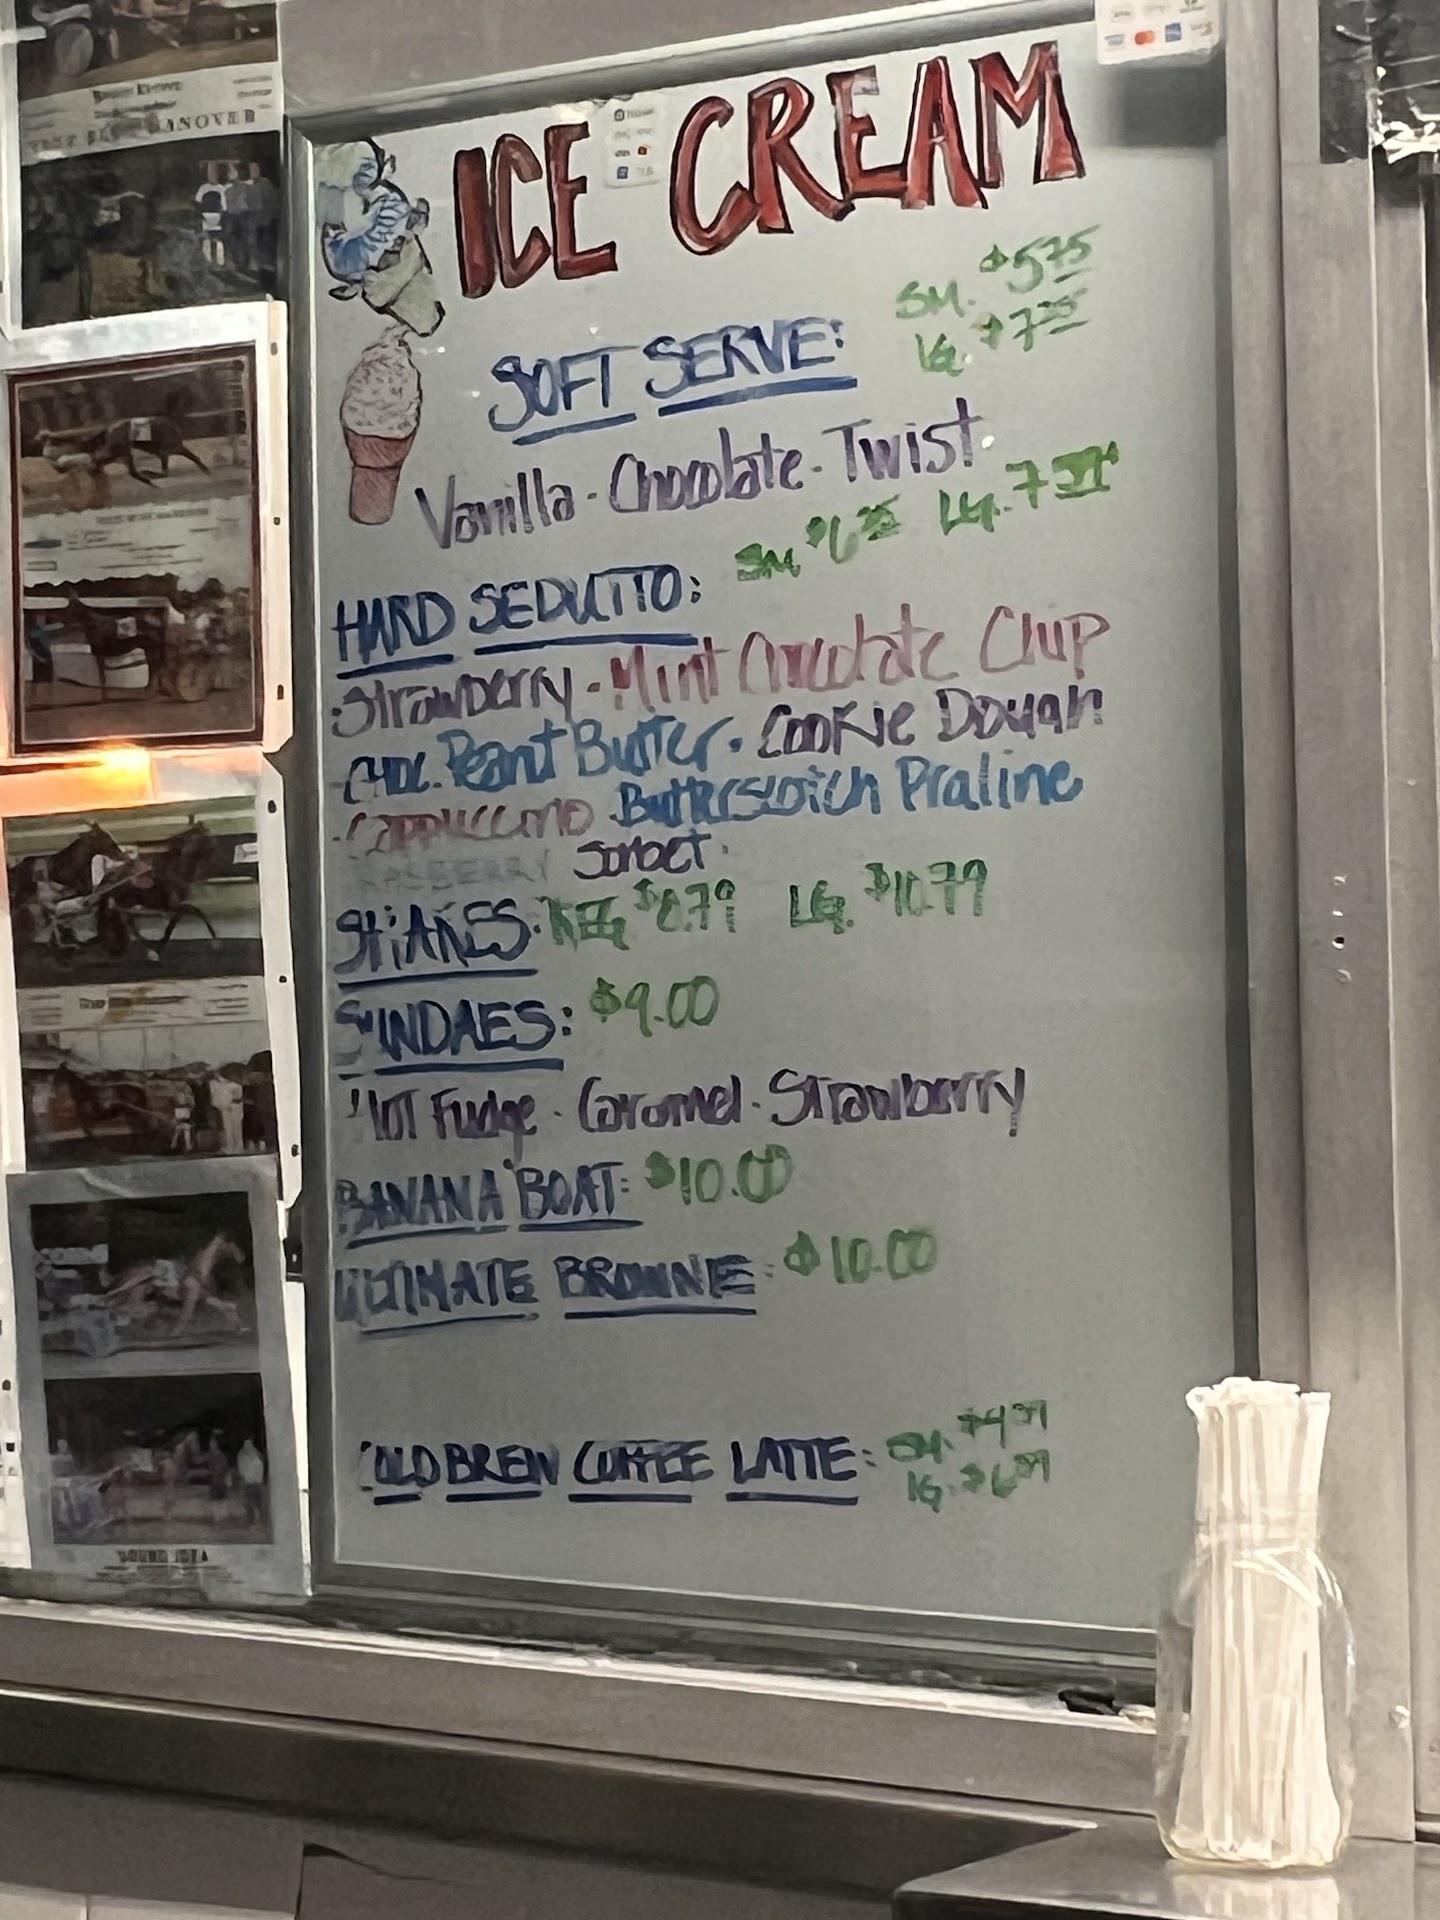 HANOVER
ICE CREAM
SOFT SERVE:
SM. $5.75
LG. $7.25
Vanilla · Chocolate · Twist
HARD SEDUTTO: SM $6.25 LG. 7
Strawberry · Mint Chocolate Chip
CHOC. Peant Butter · Cookie Dough
Cappuccino Butterscotch Praline
RASBERRY Sorbet
SHAKES: REG $8.79 LG. $10.79
SUNDAES: $9.00
HOT Fudge · Caramel · Strawberry
BANANA BOAT: $10.00
ULTIMATE BROWNIE: $10.00
COLD BREW COFFEE LATTE: SM.
LG.